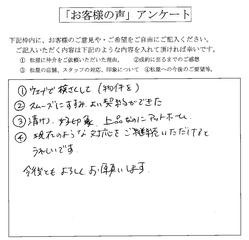 「お客様の声」アンケート
下記枠内に、お客様のご意見やご希望をご自由にご記入ください。
ご記入いただく内容は下記のような内容を入れて頂ければ幸いです。
① 松屋に仲介をご依頼いただいた理由、 ②成約に至るまでのご感想
③ 松屋の店舗、スタッフの対応、印象について ④松屋への今後のご要望等。
① ウェブで検さくして (物件を)
② スムーズにすすみ、よい契約ができた
③ 清けつ、好印象 上品なのにアットホーム
④ 現在のような対応をご継続いただけると
うれしいです
今後ともよろしくお願いします